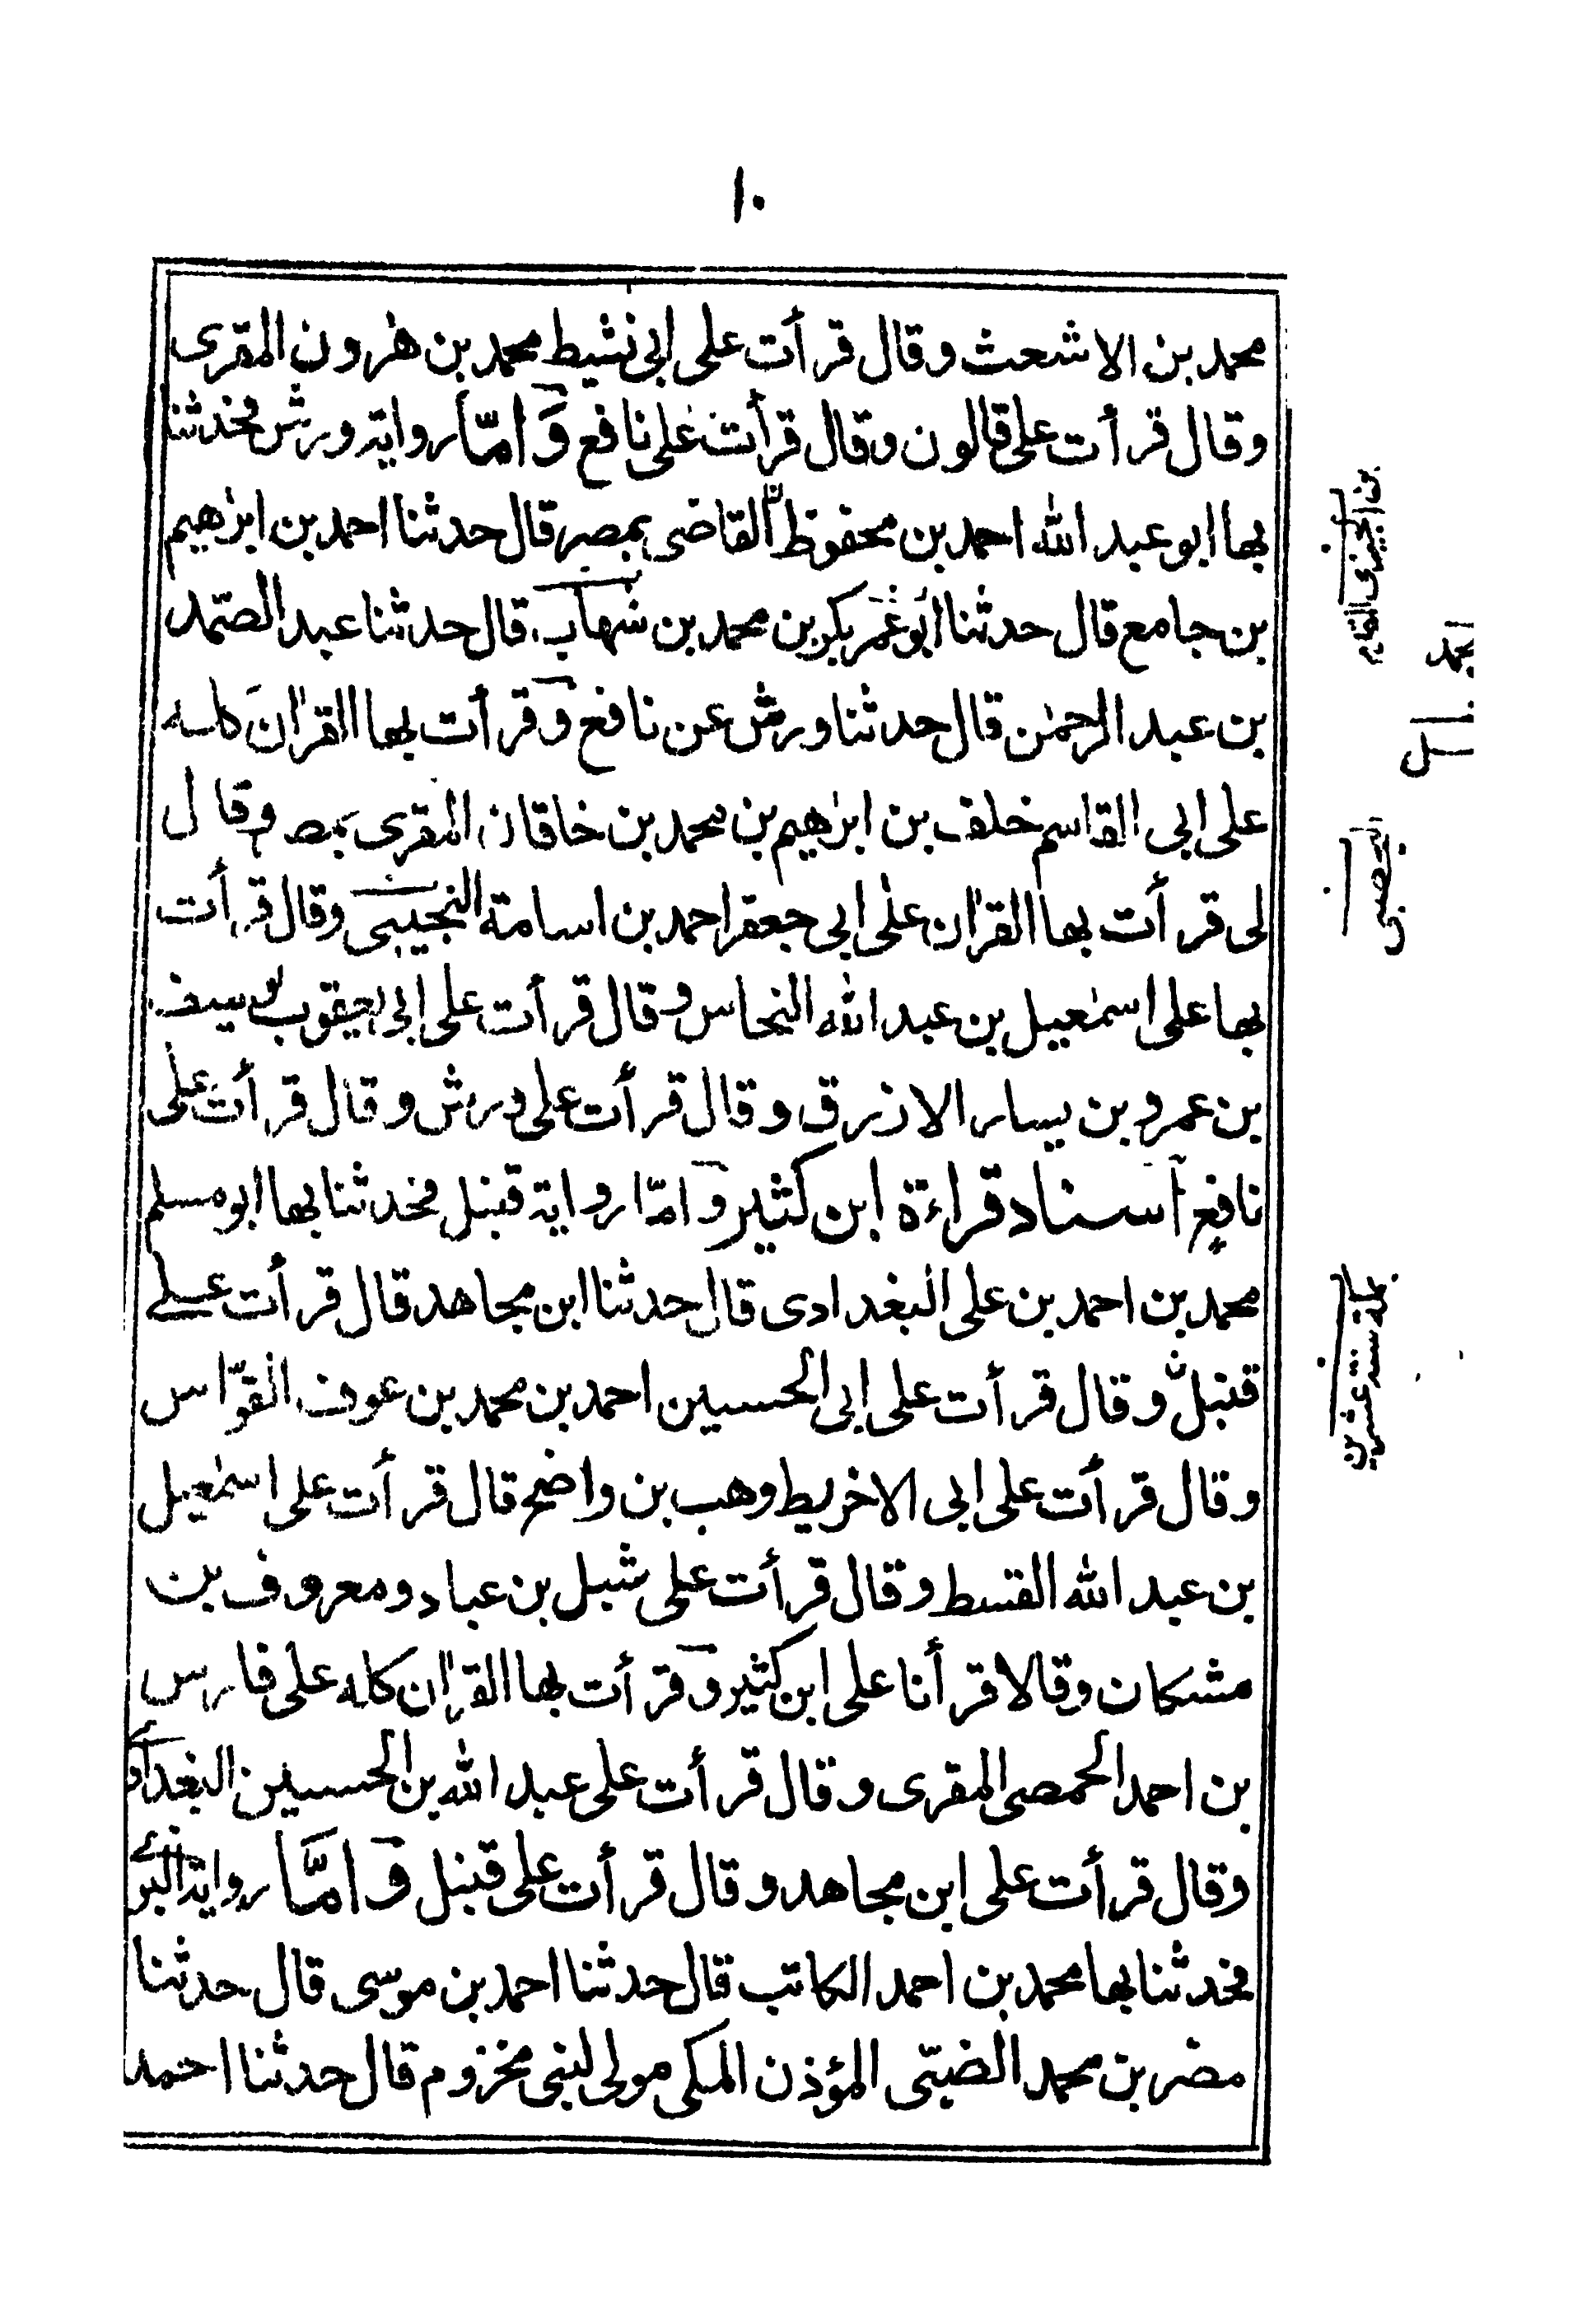 ١٠
محمد بن الاشعث وقال قرأت على ابى نشيط محمد بن هٰرون المقرى
وقال قرأت على قالون وقال قرأت على نافع وَامّا رواية ورش فحدثنا
بها ابو عبد الله احمد بن محفوظ القاضى بمصر قال حدثنا احمد بن ابرٰهيم
بن جامع قال حدثنا ابو عمر بكر بن محمد بن شهاب قال حدثنا عبد الصّمد
بن عبد الرحمٰن قال حدثنا ورش عن نافع وقرأت بها القراٰن كله
على ابى القاسم خلف بن ابرٰهيم بن محمد بن خاقان المقرى بمصر وقال
لى قرأت بها القراٰن على ابى جعفر احمد بن اسامة النجيبى وقال قرأت
بها على اسمٰعيل بن عبد الله النحاس وقال قرأت على ابى يعقوب يوسف
بن عمرو بن يسار الازرق وقال قرأت على ورش وقال قرأت على
نافع اسناد قراءة ابن كثير وامّا رواية قنبل فحدثنا بها ابو مسلم
محمد بن احمد بن على البغدادى قال حدثنا ابن مجاهد قال قرأت على
قنبل وقال قرأت على ابى الحسين احمد بن محمد بن عون القوّاس
وقال قرأت على ابى الاخريط وهب بن واضح قال قرأت على اسمٰعيل
بن عبد الله القسط وقال قرأت على شبل بن عباد ومعروف بن
مشكان وقالا قرأنا على ابن كثير وقرأت بها القراٰن كله على فارس
بن احمد الحمصى المقرى وقال قرأت على عبد الله بن الحسين البغدادى
وقال قرأت على ابن مجاهد وقال قرأت على قنبل وامَّا رواية البزى
فحدثنا بها محمد بن احمد الكاتب قال حدثنا احمد بن موسى قال حدثنا
مضر بن محمد الضبّى المؤذن المكى مولى لبنى مخزوم قال حدثنا احمد
بن الجيزى القاضى